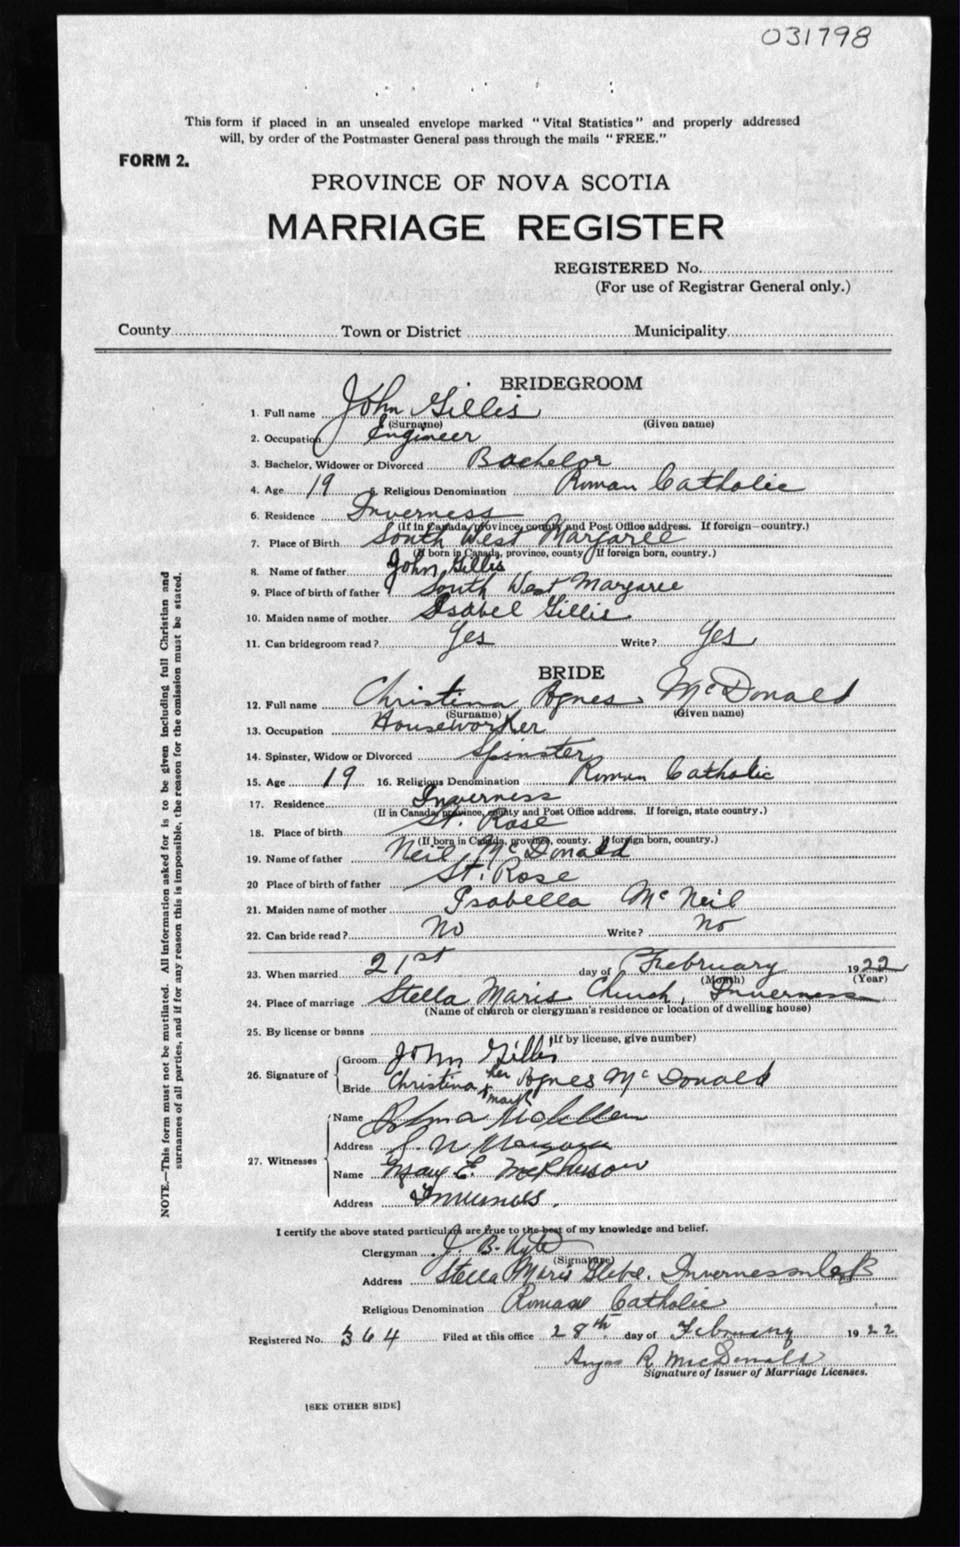 031798
This form if placed in an unsealed envelope marked "Vital Statistics" and properly addressed
will, by order of the Postmaster General pass through the mails "FREE."
FORM 2.
PROVINCE OF NOVA SCOTIA
MARRIAGE REGISTER
REGISTERED No.
(For use of Registrar General only.)
County Town or District Municipality
BRIDEGROOM
1. Full name John Gillis
(Surname) (Given name)
2. Occupation Engineer
3. Bachelor, Widower or Divorced Bachelor
4. Age 19 5. Religious Denomination Roman Catholic
6. Residence Inverness
(If in Canada, province, county and Post Office address. If foreign country.)
7. Place of Birth South West Margaree
(If born in Canada, province, county. If foreign born, country.)
8. Name of father John Gillis
9. Place of birth of father South West Margaree
10. Maiden name of mother Isabel Gillis
11. Can bridegroom read? Yes Write? Yes
BRIDE
12. Full name Christina Agnes McDonald
(Surname) (Given name)
13. Occupation Houseworker
14. Spinster, Widow or Divorced Spinster
15. Age 19 16. Religious Denomination Roman Catholic
17. Residence Inverness
(If in Canada, province, county and Post Office address. If foreign, state country.)
18. Place of birth St. Rose
(If born in Canada, province, county. If foreign born, country.)
19. Name of father Neil McDonald
20 Place of birth of father St. Rose
21. Maiden name of mother Isabella McNeil
22. Can bride read? No Write? No
23. When married 21st day of February 1922
(Month) (Year)
24. Place of marriage Stella Maris Church, Inverness
(Name of church or clergyman's residence or location of dwelling house)
25. By license or banns
(If by license, give number)
26. Signature of Groom John Gillis
Bride Christina her x mark Agnes McDonald
27. Witnesses
Name
Address
Name Mary E. McPherson
Address Inverness.
I certify the above stated particulars are true to the best of my knowledge and belief.
Clergyman J. B. Kyte
(Signature)
Address Stella Maris Glebe. Inverness C.B
Religious Denomination Roman Catholic
Registered No. 364 Filed at this office 28th day of February 1922
Angus R. McDonald
Signature of Issuer of Marriage Licenses.
[SEE OTHER SIDE]
NOTE.—This form must not be mutilated. All information asked for is to be given including full Christian and
surnames of all parties, and if for any reason this is impossible, the reason for the omission must be stated.